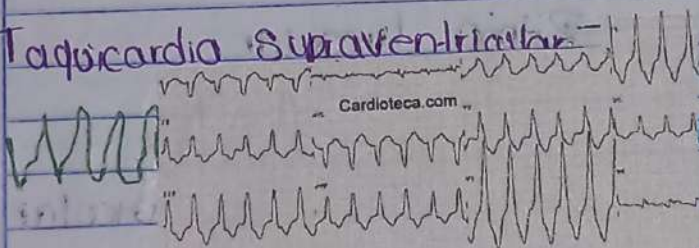 Taquicardia Supraventricular -
Cardioteca.com